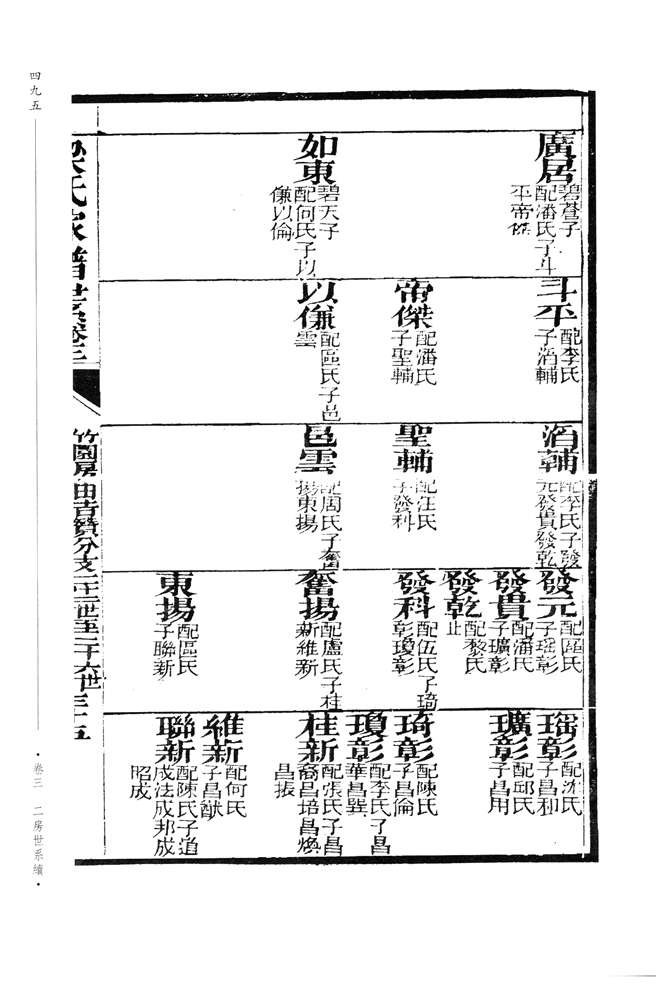 廣居
碧蒼子
配潘氏子斗
平帝傑
如東
碧天子
配何氏子以
傔以倫
斗平
配李氏
子滔輔
帝傑
配潘氏
子聖輔
以傔
配區氏子邑
雲
滔輔
配李氏子發
元發貴發乾
聖輔
配汪氏
子發科
邑雲
配周氏子奮
揚東揚
發元
配區氏
子瑶彰
發貴
配潘氏
子璸彰
發乾
配黎氏
止
發科
配伍氏子琦
彰瓊彰
奮揚
配盧氏子桂
新維新
東揚
配區氏
子聯新
瑶彰
配沈氏
子昌和
璸彰
配邱氏
子昌用
琦彰
配陳氏
子昌倫
瓊彰
配李氏子昌
華昌巽
桂新
配張氏子昌
裔昌培昌煥
昌振
維新
配何氏
子昌猷
聯新
配陳氏子道
成法成邦成
昭成
梁氏家譜世系卷三
竹園房由吉贊分支二十二世至二十六世 三十五
四九五
卷三 二房世系續